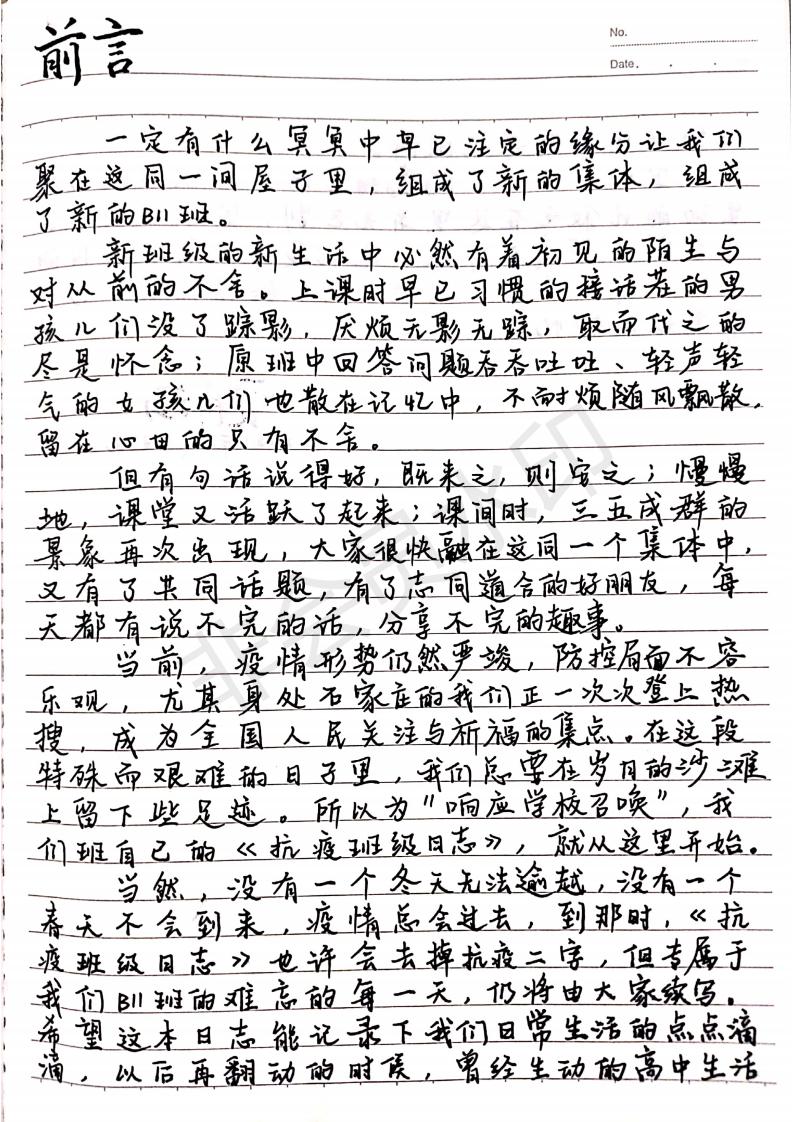 前言
No.
Date. . .
一定有什么冥冥中早已注定的缘分让我们
聚在这同一间屋子里，组成了新的集体，组成
了新的B11班。
新班级的新生活中必然有着初见的陌生与
对从前的不舍。上课时早已习惯的接话茬的男
孩儿们没了踪影，厌烦无影无踪，取而代之的
尽是怀念；原班中回答问题吞吞吐吐、轻声轻
气的女孩儿们也散在记忆中，不耐烦随风飘散，
留在心田的只有不舍。
但有句话说得好，既来之，则安之；慢慢
地，课堂又活跃了起来；课间时，三五成群的
景象再次出现，大家很快融在这同一个集体中，
又有了共同话题，有了志同道合的好朋友，每
天都有说不完的话，分享不完的趣事。
当前，疫情形势仍然严竣，防控局面不容
乐观，尤其身处石家庄的我们正一次次登上热
搜，成为全国人民关注与祈福的集点。在这段
特殊而艰难的日子里，我们总要在岁月的沙滩
上留下些足迹。所以为“响应学校召唤”，我
们班自己的《抗疫班级日志》，就从这里开始。
当然，没有一个冬天无法逾越，没有一个
春天不会到来，疫情总会过去，到那时，《抗
疫班级日志》也许会去掉抗疫二字，但专属于
我们B11班的难忘的每一天，仍将由大家续写。
希望这本日志能记录下我们日常生活的点点滴
滴，以后再翻动的时候，曾经生动的高中生活
非会员水印